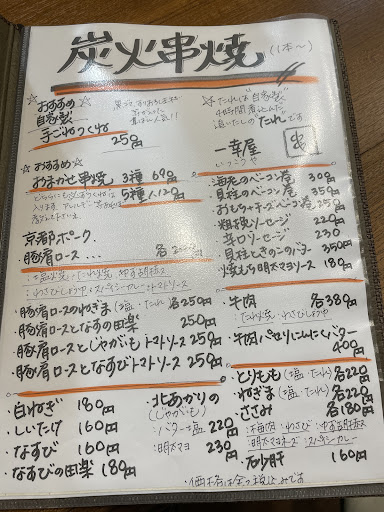 炭火串焼 (1本〜)
☆おすすめ☆
自家製
手ごねつくね
250円
☆たれは"自家製"
継ぎ足した
追いたしの"たれ"です
一幸屋
☆おすすめ☆
おまかせ串焼 3種 690円
5種 1120円
京都ポーク
豚肩ロース... 各250円
:塩炭焼:たれ焼:ゆず胡椒
:わさびしょうゆ:スパイシー:トマトソース
・豚肩ロースのねぎま(塩・たれ) 各250円
・豚肩ロースとなすの田楽 250円
・豚肩ロースとじゃがもトマトソース 250円
・豚肩ロースとなすびトマトソース 250円
・白ねぎ 180円
・しいたけ 160円
・なすび 160円
・なすびの田楽 180円
北あかりの
(じゃがいも)
:バター塩 220円
:明太マヨ 230円
・海老のベーコン巻 300円
・貝柱のベーコン巻 350円
・おもちチーズベーコン巻 250円
・粗挽ソーセージ 220円
・辛口ソーセージ 230
・貝柱ときのこのバター 350円
・焼もち明太マヨソース 180円
・牛肉 各380円
たれ炭焼・わさびしょうゆ
・牛肉パセリにんにくバター
400円
・とりもも(塩・たれ) 各220円
・ねぎま(塩・たれ) 各220
・ささみ 各180円
:梅肉:わさび:ゆず胡椒
:明太マヨネーズ:スパイシーカレー
・砂肝 160円
・価格は全て税込みです